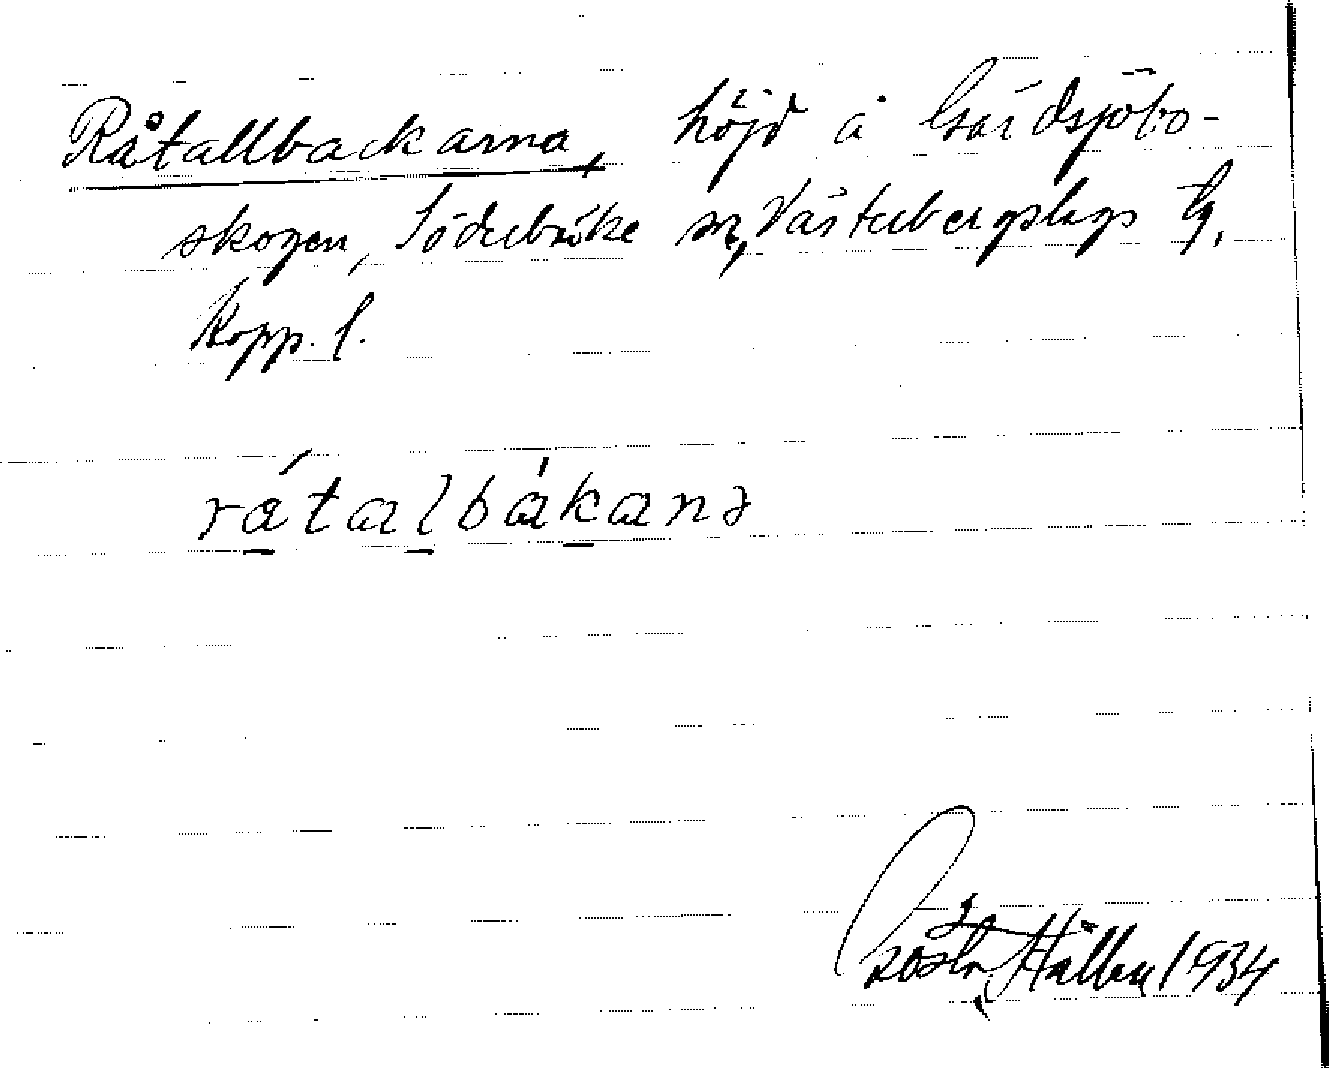 Råtallbackarna, höjd å Gårdsjöbo-
skogen, Söderbärke sn, Västerbergslags tg,
Kopp. l.
rátalbákanə
Gösta Hállen 1934